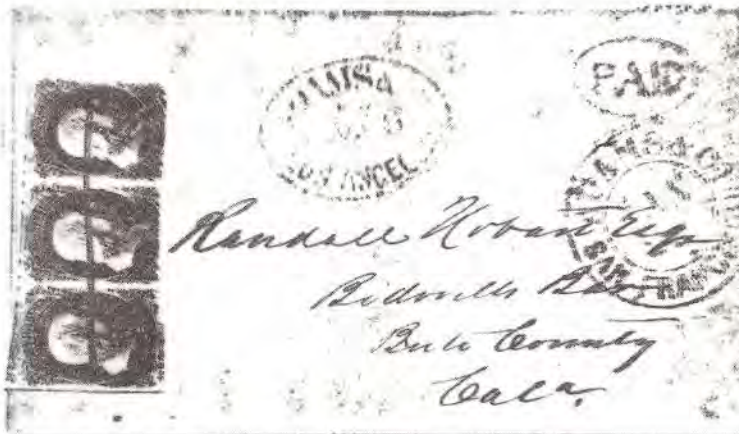 PAID
AMS & CO
SAN FRAN
Randall Hobart Esq
Bidwells Bar
Bute County
Cala.